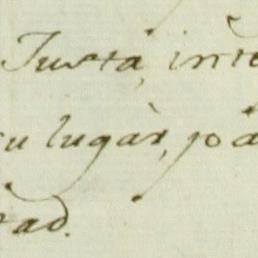 Justa, inte
su lugàr, jo a
rad.